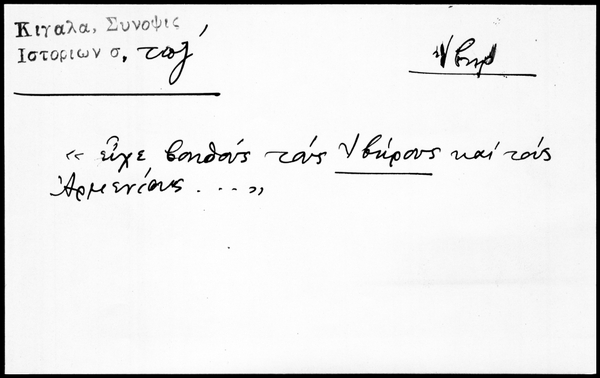 Κιγαλα, Συνοψις
Ιστοριων σ. τοζ´
Ἴβηρ
« εἶχε βοηθούς τούς Ἴβήρους καί τούς
Ἀρμενίους .... »